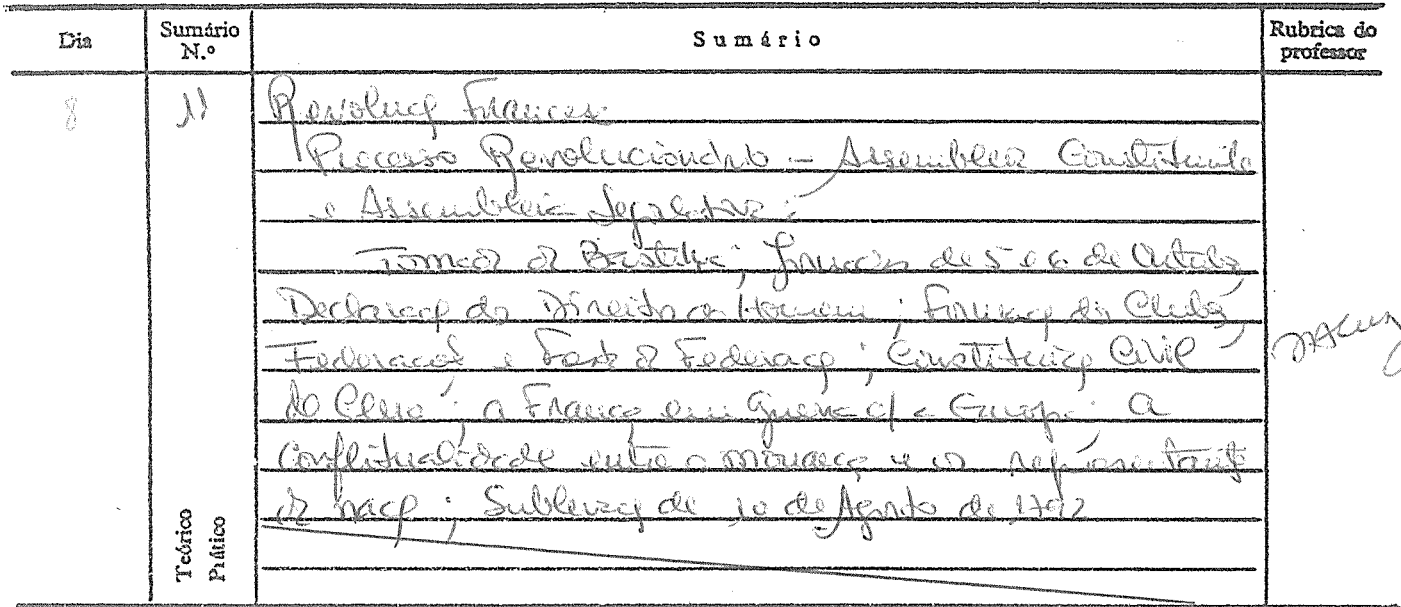 Dia Sumário N.º Sumário Rubrica do professor
8 11 Revolução Francesa:
Processo Revolucionário – Assembleia Constituinte
e Assembleia Legislativa:
Tomada da Bastilha; Jornadas de 5 e 6 de Outubro,
Declaração dos Direitos do Homem; Formação dos Clubes,
Federações e Festa da Federação; Constituição Civil
do Clero; a França em Guerra c/ a Europa. A
conflitualidade entre o monarca e os representantes
da nação; Sublevação de 10 de Agosto de 1792
Teórico
Prático